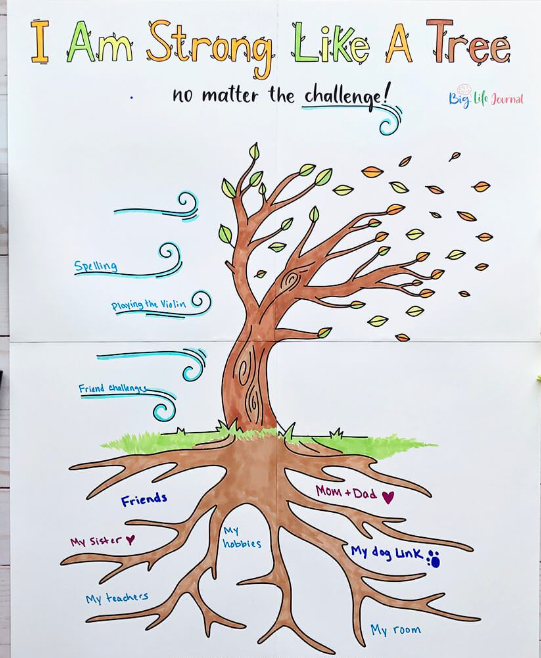 I Am Strong Like A Tree
no matter the challenge!
Big Life Journal
Spelling
Playing the Violin
Friend challenges
Friends
Mom + Dad
My Sister
My hobbies
My dog Link
My teachers
My room